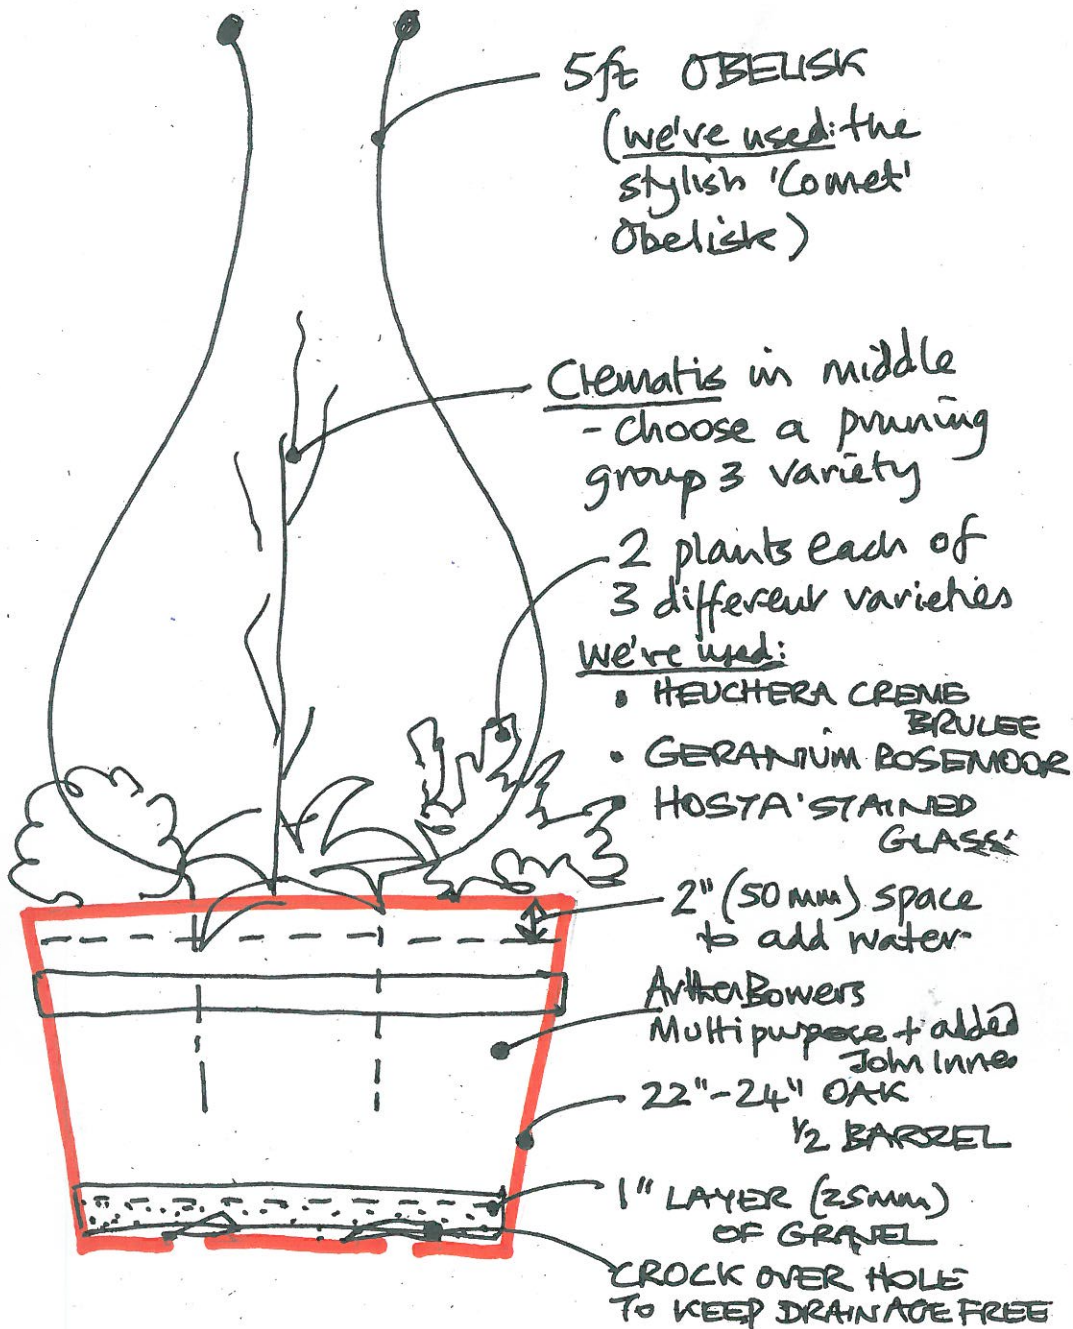 5ft OBELISK
(we've used: the
stylish 'Comet'
Obelisk)
Clematis in middle
- choose a pruning
group 3 variety
2 plants each of
3 different varieties
we've used:
• HEUCHERA CREME
BRULEE
• GERANIUM ROSEMOOR
• HOSTA 'STAINED
GLASS'
2" (50mm) space
to add water
Arther Bowers
Multipurpose + added
John Innes
22"-24" OAK
1/2 BARREL
1" LAYER (25mm)
OF GRAVEL
CROCK OVER HOLE
TO KEEP DRAINAGE FREE